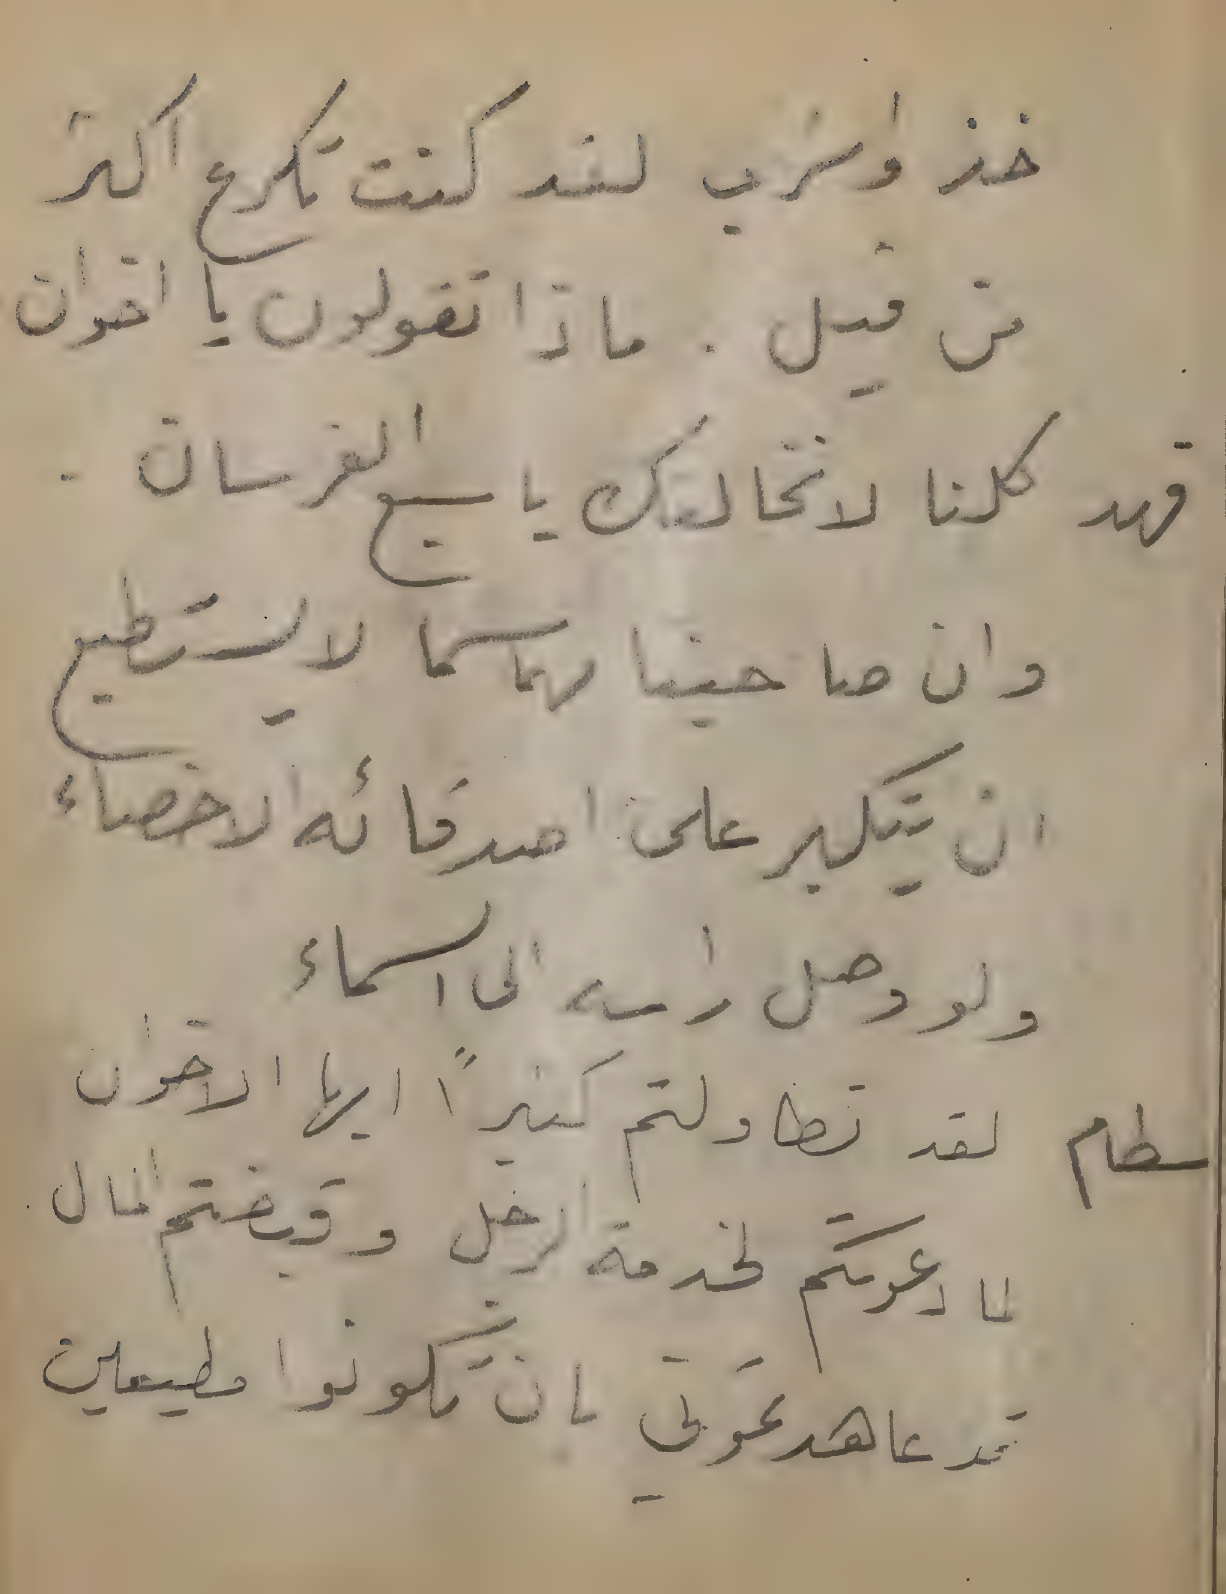 خذ واشرب لقد كنت تكرع اكثر
من قبل . ماذا تقولون يا اخوان
فهد كلنا لا نخالفك يا سبع الفرسان .
وان صاحبنا مهما سما لا يستطيع
ان يتكبر على اصدقائه الاخصاء
ولو وصل راسه الى السماء
سطام لقد تطاولتم كثيراً ايها الاخوان
لما دعوتكم لخدمة الرجل وقبضتم المال
قد عاهدتموني بان تكونوا مطيعين